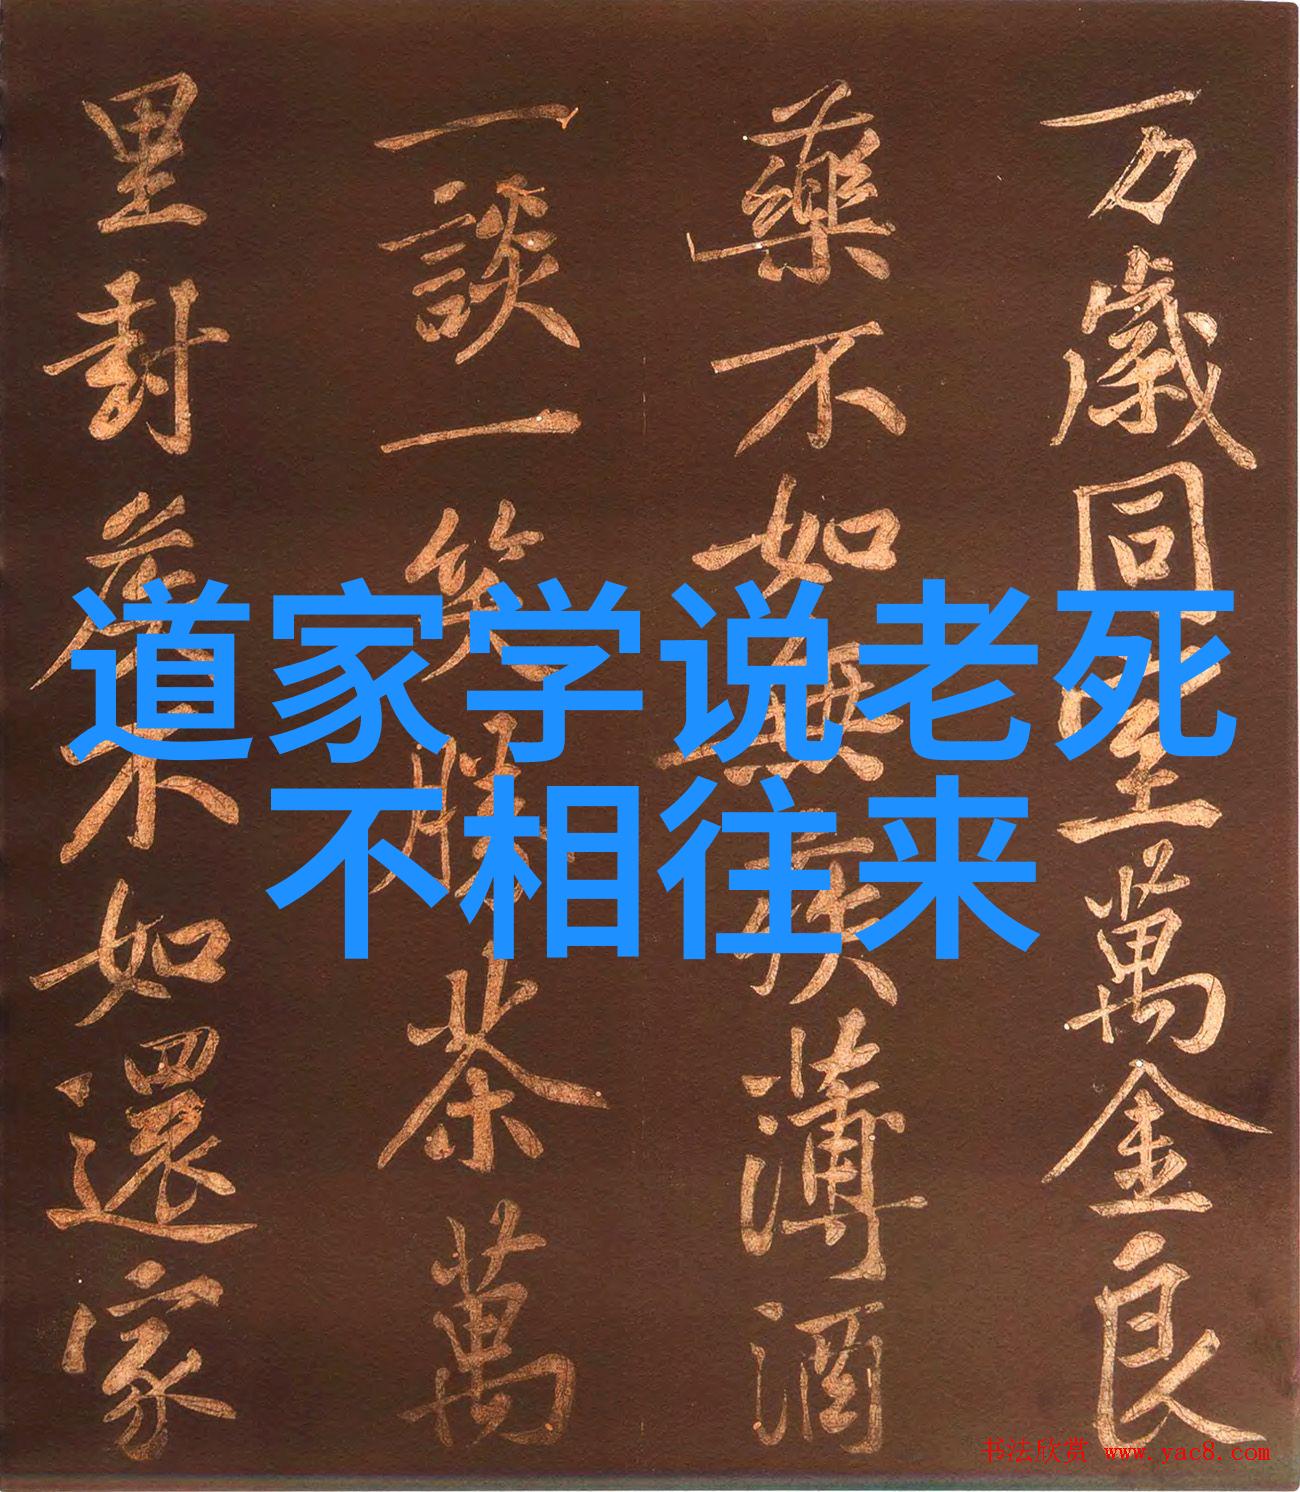 道家学说老死
不相往来
一万岁同一堂萬金良
藥不如無疾薄酒
一談一笑勝茶萬
里封矦不如還家
书法欣赏 www.yac8.com